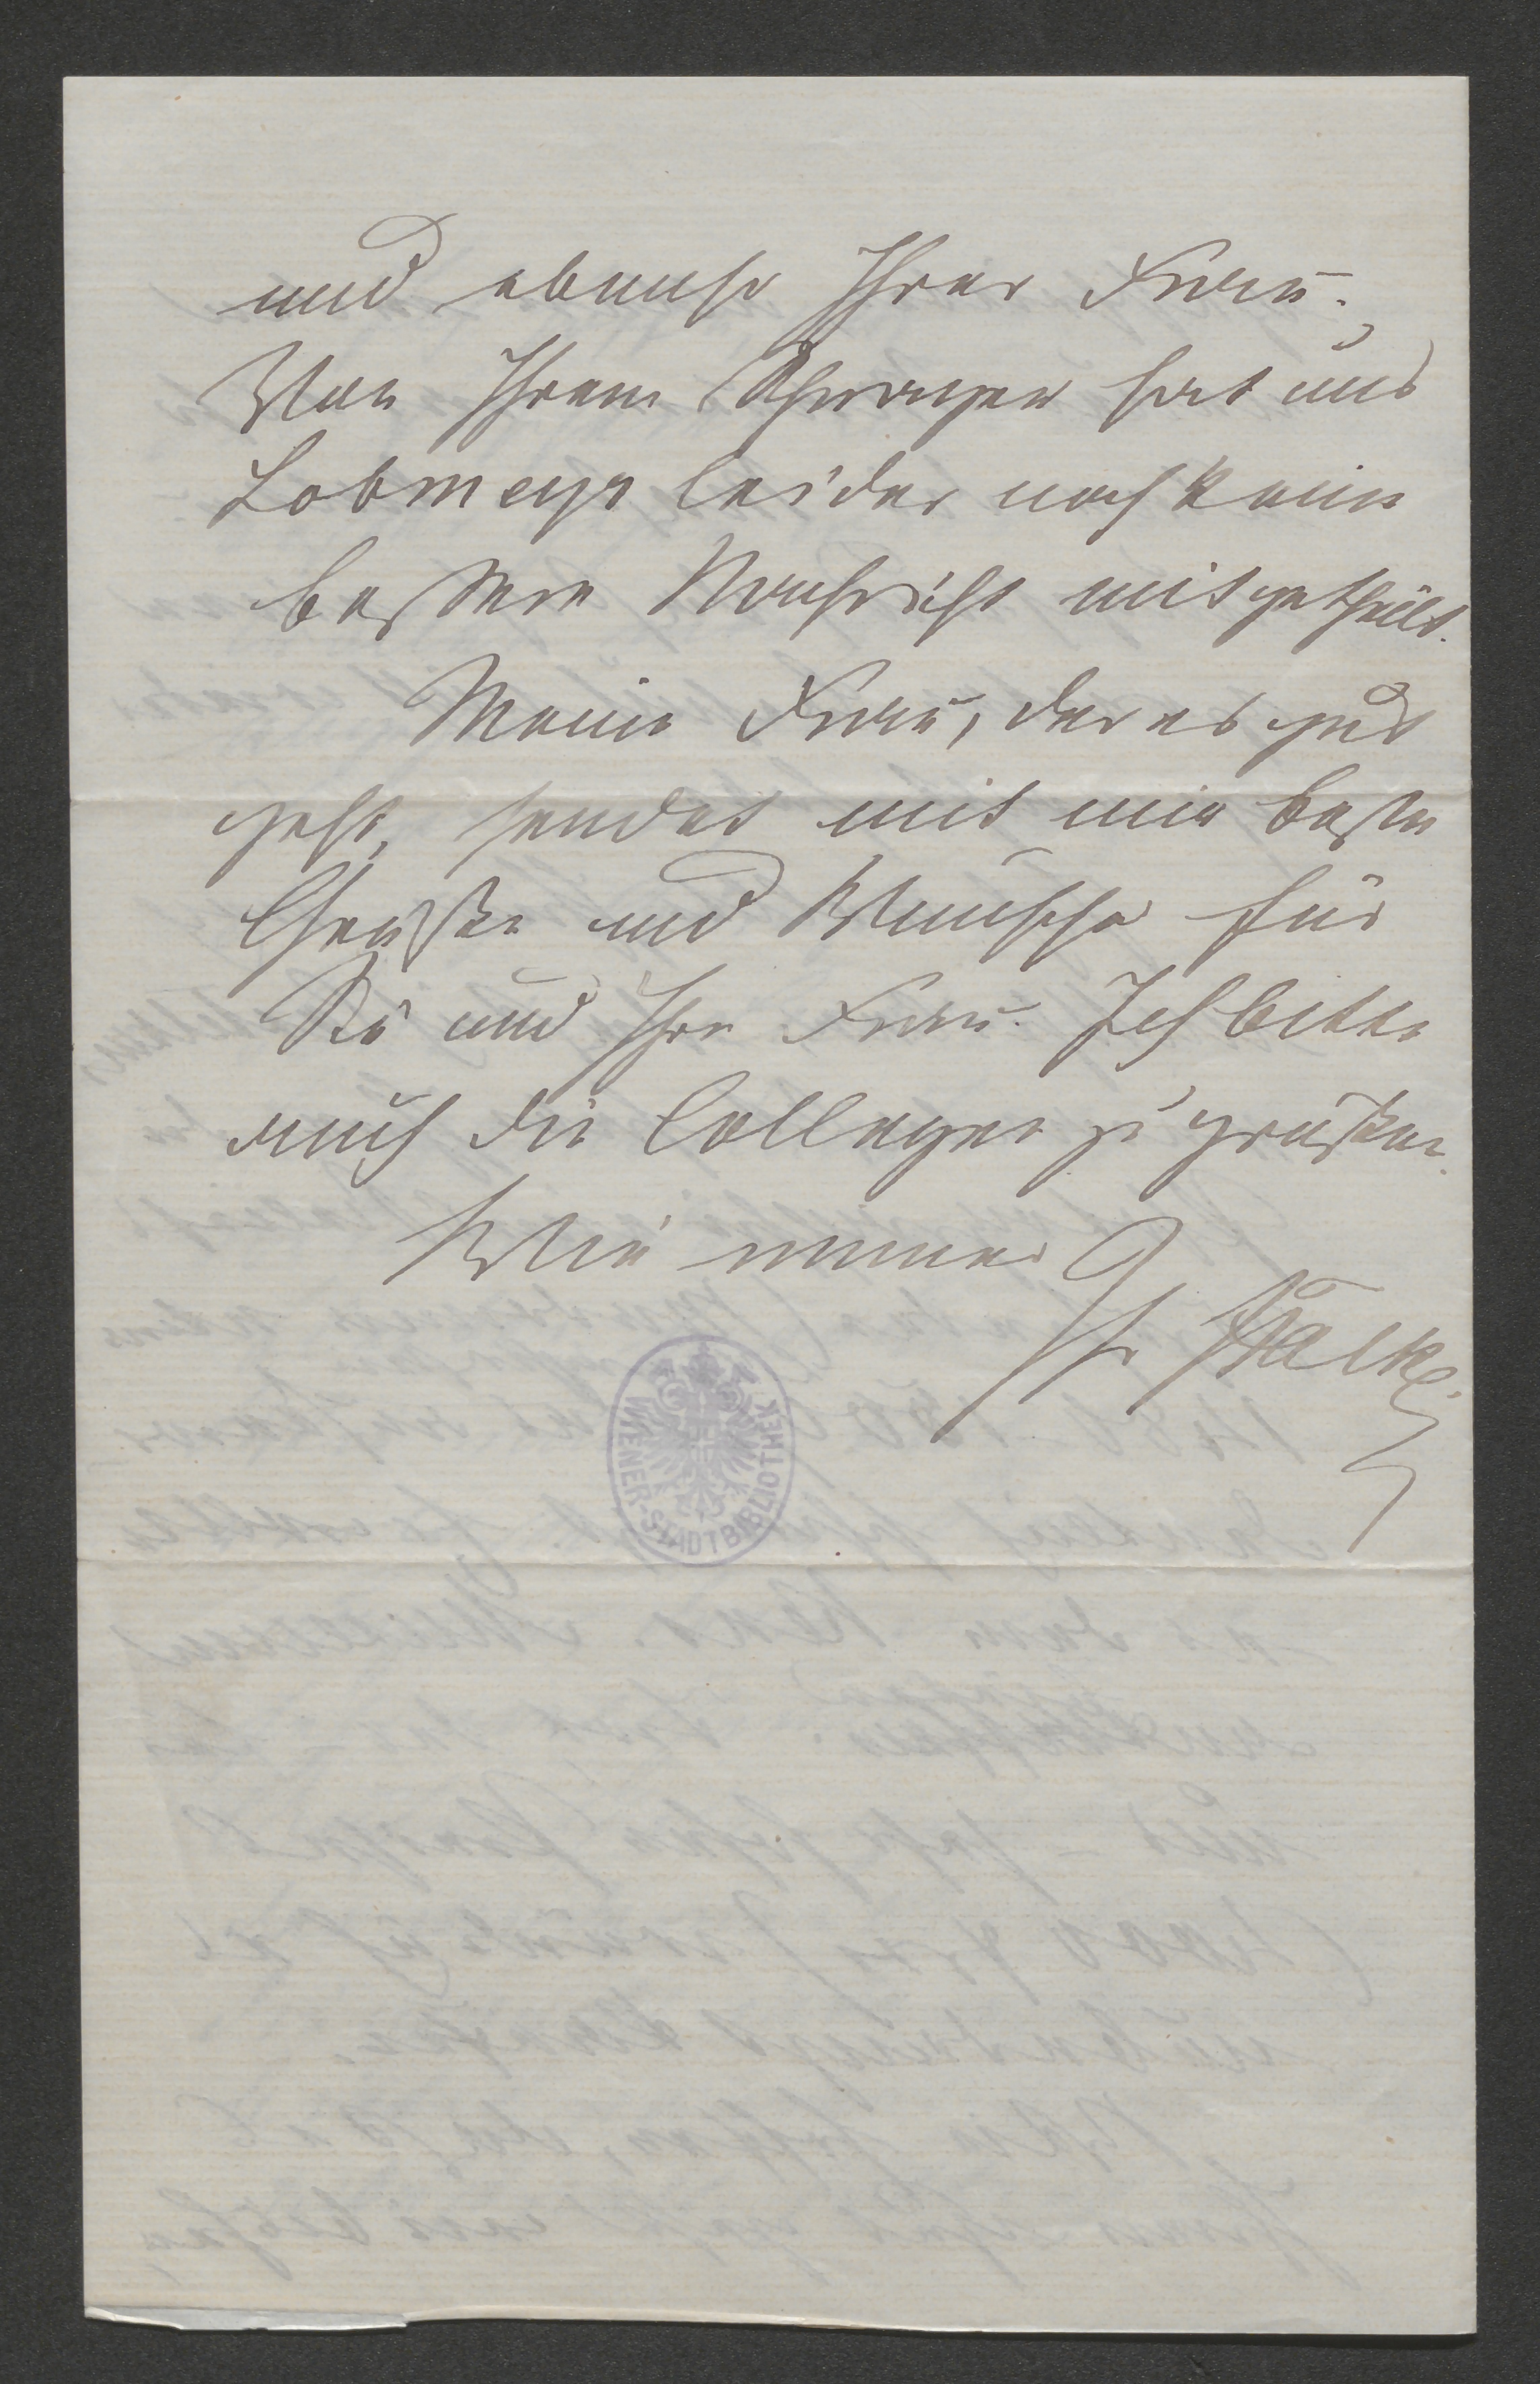 und ebenso Ihrer Frau.
Von Ihrem Schwager hat uns
Lobmeyr leider noch keine
bessere Nachricht mitgetheilt.
Meine Frau, der es gut
geht, sendet mit mir beste
Grüße und Wünsche für
Sie und Ihre Frau. Ich bitte
auch die Collegen zu grüßen.
Wie immer
Ihr JFalke.
WIENER-STADTBIBLIOTHEK